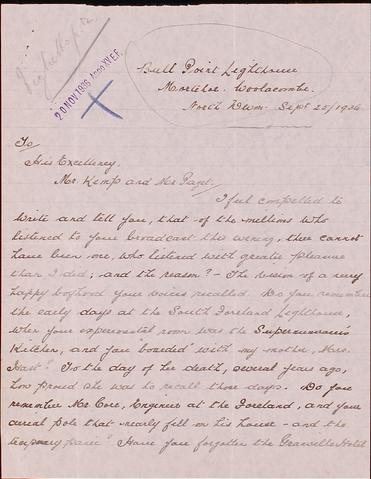 20 NOV 1936 Anno XV E.F.
Bull Point Lighthouse
Morthoe. Woolacombe.
North Devon. Sept 25/1936
To
His Excellency.
Mr. Kemp and Mr Paget.
I feel compelled to
write and tell you, that of the millions who
listened to your broadcast this evening, there cannot
have been one, who listened with greater pleasure
than I did; and the reason? - The vision of a very
happy boyhood your voices recalled. Do you remember
the early days at the South Foreland Lighthouse,
when your experimental room was the Supernumerary's
Kitchen, and you 'boarded' with my mother, Mrs.
Hart? To the day of her death, several years ago,
how proud she was to recall those days. Do you
remember Mr Core, Engineer at the Foreland, and your
aerial pole that nearly fell on his house - and the
temporary panic? Have you forgotten the Granville Hotel